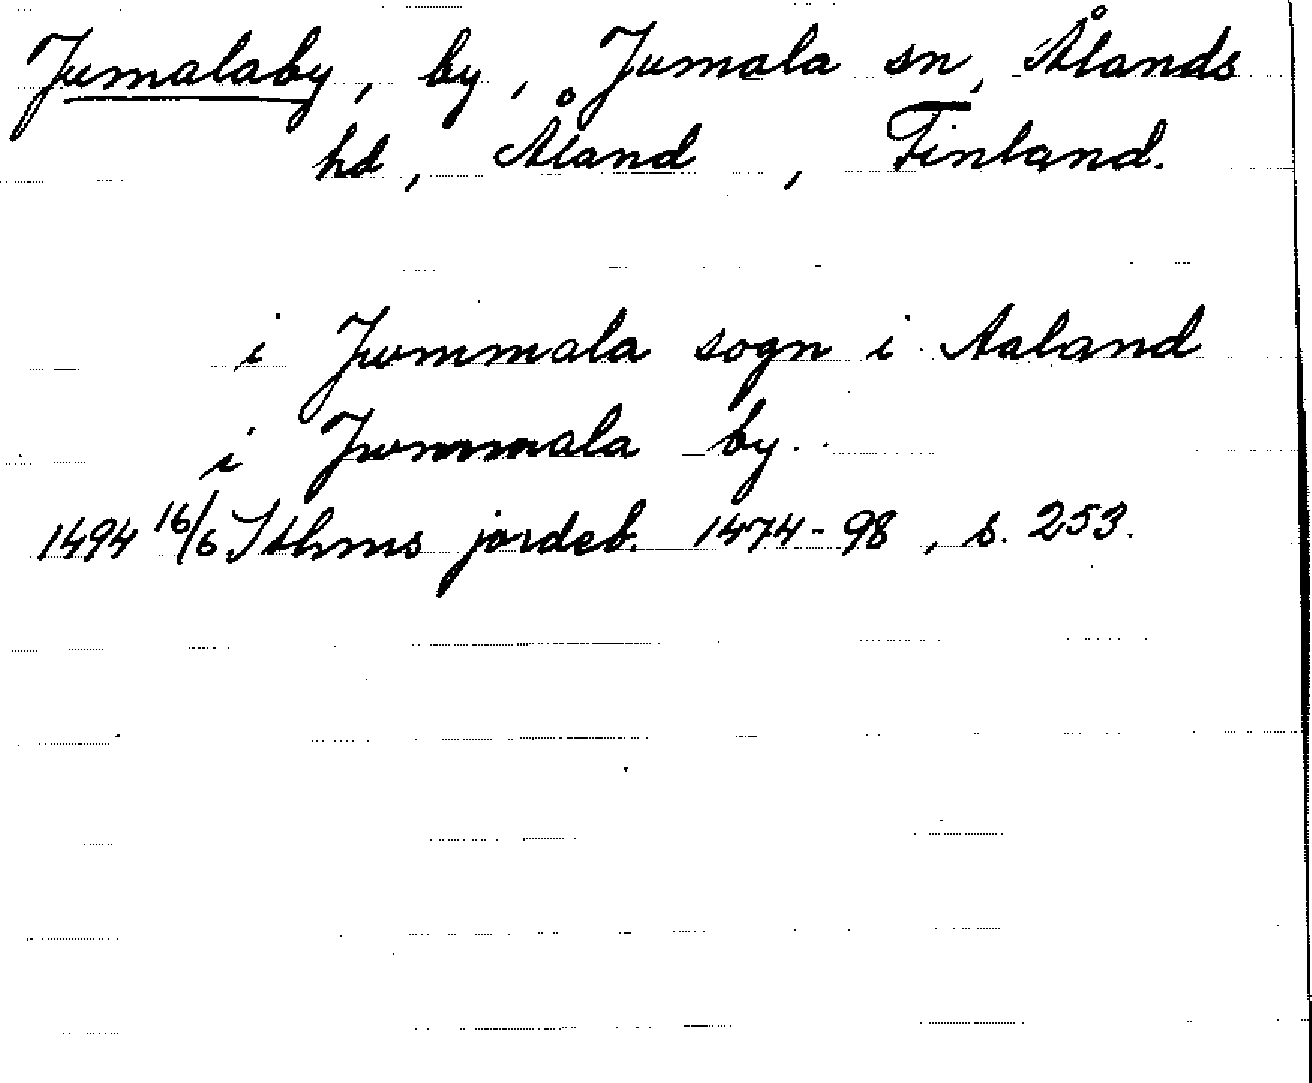 Jumalaby, by, Jumala sn, Ålands
hd, Åland, Finland.
i Jwmmala sogn i Aaland
i Jwmmala by.
1494 16/6 Sthms jordeb. 1474-98, s. 253.